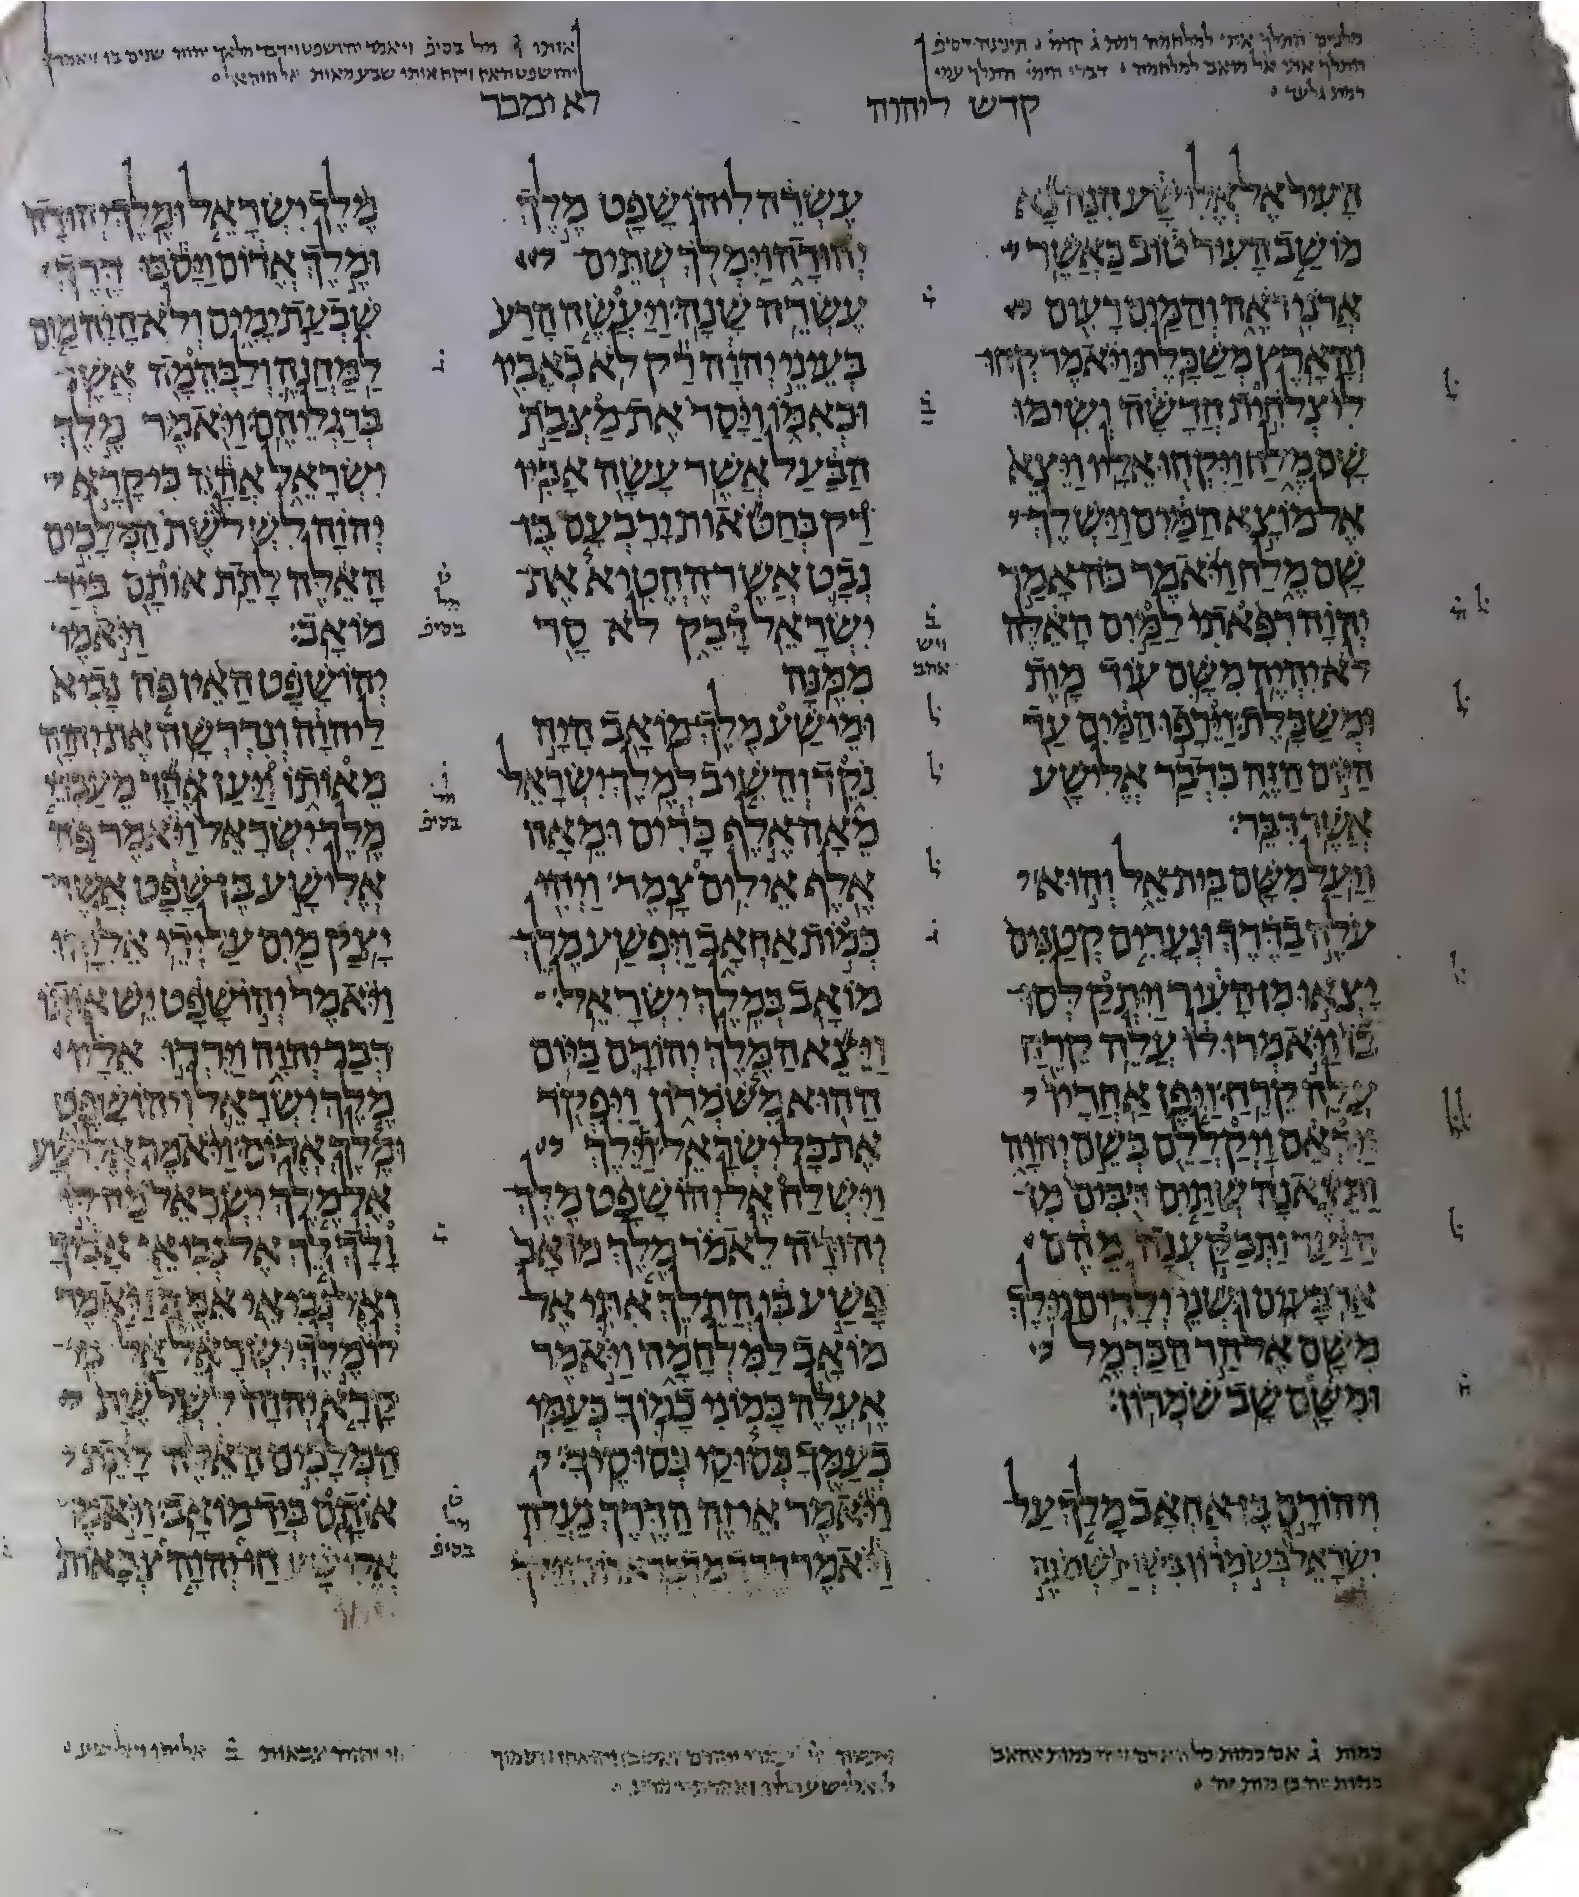 מלכים התלך אתי למלחמה רמת ג̇ קדמ̇ תינינה דסיפ̇
התלך אתי אל מואב למלחמה דברי הימי̇ התלך עמי
רמת גלעד
אותו ט̇ מל בסיפ̇ ויאמר יהושפט וידבר מלאך יהוה שנים בו ויאמר
יהושפט האין ויקח אותו שבע מאות
קדש ליהוה
לא ימכר
העיר אל אלישע הנה נא
מושב העיר טוב כאשר
אדני ראה והמים רעים
והארץ משכלת ויאמר קחו
לי צלחית חדשה ושימו
שם מלח ויקחו אליו ויצא
אל מוצא המים וישלך
שם מלח ויאמר כה אמר
יהוה רפאתי למים האלה
לא יהיה משם עוד מות
ומשכלת וירפו המים עד
היום הזה כדבר אלישע
אשר דבר׃
ויעל משם בית אל והוא
עלה בדרך ונערים קטנים
יצאו מן העיר ויתקלסו
בו ויאמרו לו עלה קרח
עלה קרח׃ ויפן אחריו
ויראם ויקללם בשם יהוה
ותצאנה שתים דבים מן
היער ותבקענה מהם
ארבעים ושני ילדים׃ וילך
משם אל הר הכרמל
ומשם שב שמרון׃
ויהורם בן אחאב מלך על
ישראל בשמרון בשנת שמנה
עשרה ליהושפט מלך
יהודה וימלך שתים
עשרה שנה׃ ויעשה הרע
בעיני יהוה רק לא כאביו
וכאמו ויסר את מצבת
הבעל אשר עשה אביו׃
רק בחטאות ירבעם בן
נבט אשר החטיא את
ישראל דבק לא סר
ממנה׃
ומישע מלך מואב היה
נקד והשיב למלך ישראל
מאה אלף כרים ומאה
אלף אילים צמר׃ ויהי
כמות אחאב ויפשע מלך
מואב במלך ישראל׃
ויצא המלך יהורם ביום
ההוא משמרון ויפקד
את כל ישראל׃ וילך
וישלח אל יהושפט מלך
יהודה לאמר מלך מואב
פשע בי התלך אתי אל
מואב למלחמה ויאמר
אעלה כמוני כמוך כעמי
כעמך כסוסי כסוסיך׃
ויאמר אי זה הדרך נעלה
ויאמר דרך מדבר אדום׃ וילך
מלך ישראל ומלך יהודה
ומלך אדום ויסבו דרך
שבעת ימים ולא היה מים
למחנה ולבהמה אשר
ברגליהם׃ ויאמר מלך
ישראל אהה כי קרא
יהוה לשלשת המלכים
האלה לתת אותם ביד
מואב׃ ויאמר
יהושפט האין פה נביא
ליהוה ונדרשה את יהוה
מאותו ויען אחד מעבדי
מלך ישראל ויאמר פה
אלישע בן שפט אשר
יצק מים על ידי אליהו׃
ויאמר יהושפט יש אותו
דבר יהוה וירדו אליו
מלך ישראל ויהושפט
ומלך אדום׃ ויאמר אלישע
אל מלך ישראל מה לי
ולך לך אל נביאי אביך
ואל נביאי אמך ויאמר
לו מלך ישראל אל כי
קרא יהוה לשלשת
המלכים האלה לתת
אותם ביד מואב׃ ויאמר
אלישע חי יהוה צבאות
ל̇
ל̇
ב̇
ויש
אהב
מל
בסיפ̇
כמות ג̇ אם כמות כל האדם ויהי כמות אחאב
חי יהוה צבאות ב̇ אליהו ואלישע